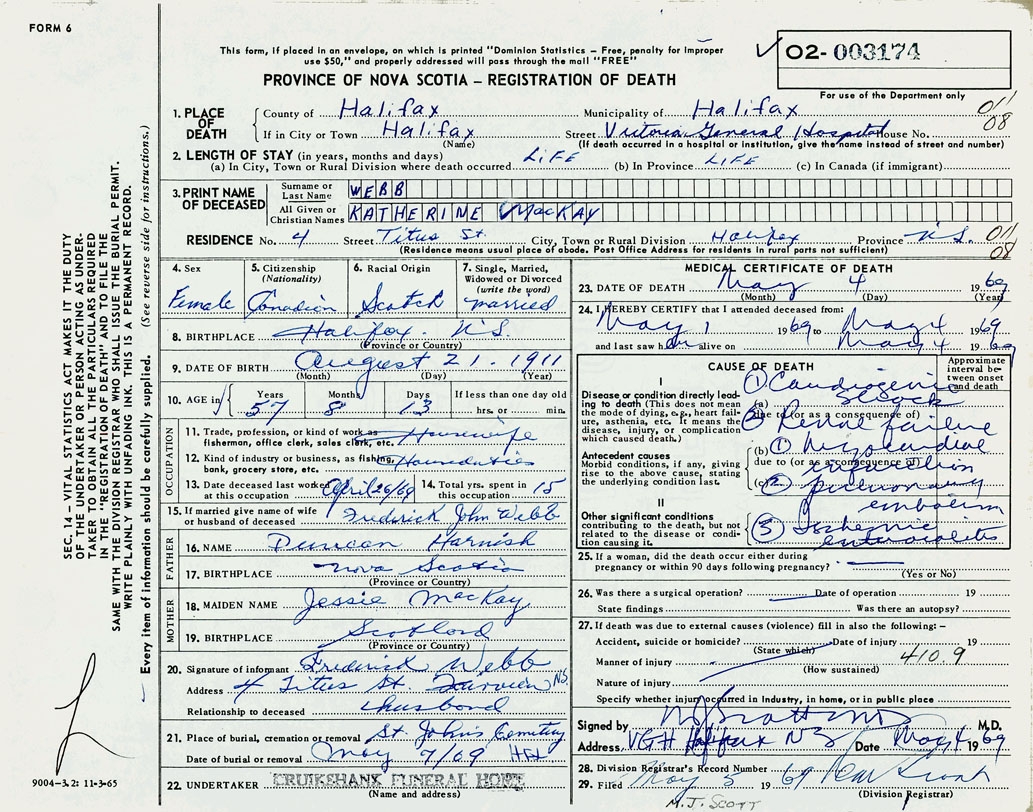 FORM 6
This form, if placed in an envelope, on which is printed "Dominion Statistics – Free, penalty for improper
use $50," and properly addressed will pass through the mail "FREE"
PROVINCE OF NOVA SCOTIA – REGISTRATION OF DEATH
02- 003174
For use of the Department only
011
08
1. PLACE OF DEATH
County of Halifax Municipality of Halifax
If in City or Town Halifax Street Victoria General Hospital House No.
(Name) (If death occurred in a hospital or institution, give the name instead of street and number)
2. LENGTH OF STAY (in years, months and days)
(a) In City, Town or Rural Division where death occurred LIFE (b) In Province LIFE (c) In Canada (if immigrant)
3. PRINT NAME OF DECEASED
Surname or Last Name WEBB
All Given or Christian Names KATHERINE MacKAY
RESIDENCE No. 4 Street Titus St. City, Town or Rural Division Halifax Province N.S. 011
08
(Residence means usual place of abode. Post Office Address for residents in rural parts not sufficient)
4. Sex Female
5. Citizenship (Nationality) Canadian
6. Racial Origin Scotch
7. Single, Married, Widowed or Divorced (write the word) married
8. BIRTHPLACE Halifax. N.S.
(Province or Country)
9. DATE OF BIRTH August 21. 1911
(Month) (Day) (Year)
10. AGE in Years 57 Months 8 Days 13 If less than one day old hrs. or min.
OCCUPATION
11. Trade, profession, or kind of work as fisherman, office clerk, sales clerk, etc. Housewife
12. Kind of industry or business, as fishing, bank, grocery store, etc. Household duties
13. Date deceased last worked at this occupation April 26/69
14. Total yrs. spent in this occupation 15
15. If married give name of wife or husband of deceased Frederick John Webb
FATHER
16. NAME Duncan Harnish
17. BIRTHPLACE Nova Scotia
(Province or Country)
MOTHER
18. MAIDEN NAME Jessie MacKay
19. BIRTHPLACE Scotland
(Province or Country)
20. Signature of informant Frederick Webb
Address 4 Titus St. Fairview NS.
Relationship to deceased husband
21. Place of burial, cremation or removal St. Johns Cemetery
Date of burial or removal May 7/69 Hfx
22. UNDERTAKER CRUIKSHANK FUNERAL HOME
(Name and address)
MEDICAL CERTIFICATE OF DEATH
23. DATE OF DEATH May 4 1969
(Month) (Day) (Year)
24. I HEREBY CERTIFY that I attended deceased from:
May 1 1969 to May 4 1969
and last saw her alive on May 4 1969
CAUSE OF DEATH
Approximate interval between onset and death
I
Disease or condition directly leading to death (This does not mean the mode of dying, e.g., heart failure, asthenia, etc. It means the disease, injury, or complication which caused death.)
(a) ① Cardiogenic shock
due to (or as a consequence of)
② Renal failure
Antecedent causes
Morbid conditions, if any, giving rise to the above cause, stating the underlying condition last.
(b) ① Myocardial infarction
due to (or as a consequence of)
(c) ② pulmonary embolism
II
Other significant conditions contributing to the death, but not related to the disease or condition causing it.
③ Ischemic enterocolitis
25. If a woman, did the death occur either during
pregnancy or within 90 days following pregnancy?
(Yes or No)
26. Was there a surgical operation? Date of operation 19
State findings Was there an autopsy?
27. If death was due to external causes (violence) fill in also the following: –
Accident, suicide or homicide? Date of injury 19
(State which)
Manner of injury 410.9
(How sustained)
Nature of injury
Specify whether injury occurred in Industry, in home, or in public place
Signed by M.D.
Address VGH Halifax NS Date May 4 1969
28. Division Registrar's Record Number
29. Filed May 5 1969
(Division Registrar)
M.J. SCOTT
SEC. 14 – VITAL STATISTICS ACT MAKES IT THE DUTY
OF THE UNDERTAKER OR PERSON ACTING AS UNDER-
TAKER TO OBTAIN ALL THE PARTICULARS REQUIRED
IN THE "REGISTRATION OF DEATH" AND TO FILE THE
SAME WITH THE DIVISION REGISTRAR WHO SHALL ISSUE THE BURIAL PERMIT.
WRITE PLAINLY WITH UNFADING INK. THIS IS A PERMANENT RECORD.
Every item of information should be carefully supplied. (See reverse side for instructions.)
9004-3.2: 11-3-65